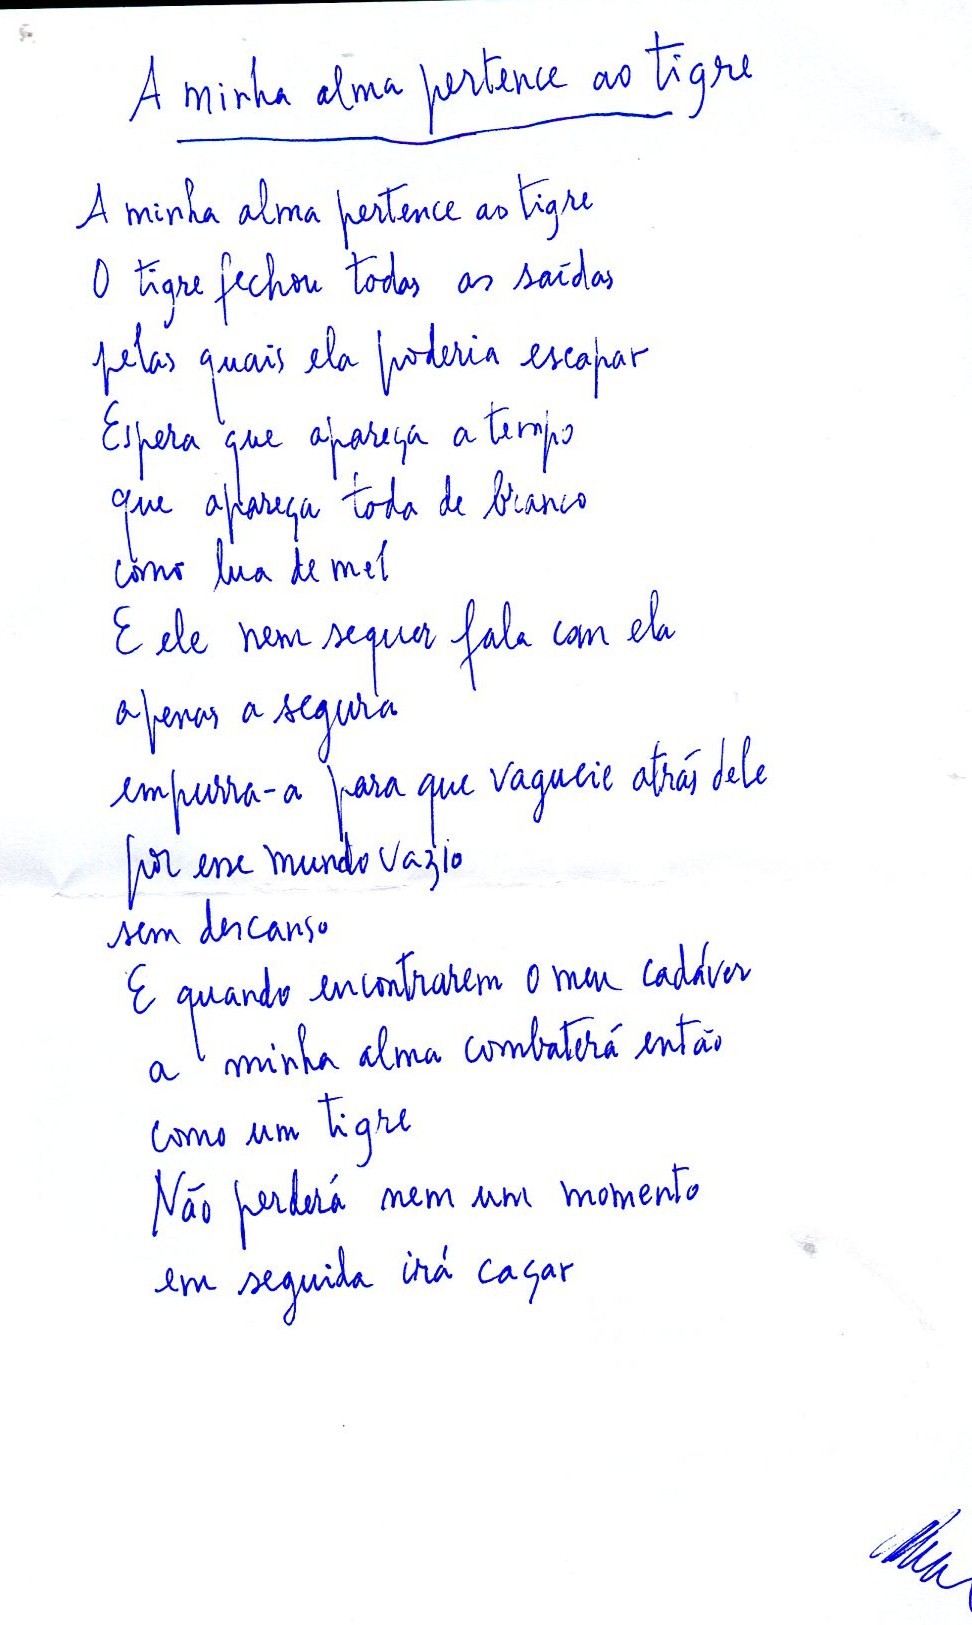 A minha alma pertence ao tigre
A minha alma pertence ao tigre
O tigre fechou todas as saídas
pelas quais ela poderia escapar
Espera que apareça a tempo
que apareça toda de branco
como lua de mel
E ele nem sequer fala com ela
apenas a segura
empurra-a para que vagueie atrás dele
por esse mundo vazio
sem descanso
E quando encontrarem o meu cadáver
a minha alma combaterá então
como um tigre
Não perderá nem um momento
em seguida irá caçar